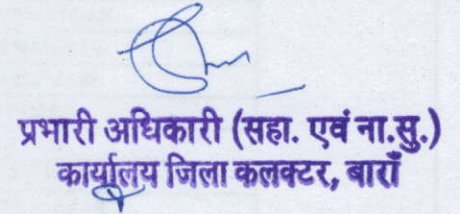 प्रभारी अधिकारी (सहा. एवं ना.सु.)
कार्यालय जिला कलक्टर, बाराँ